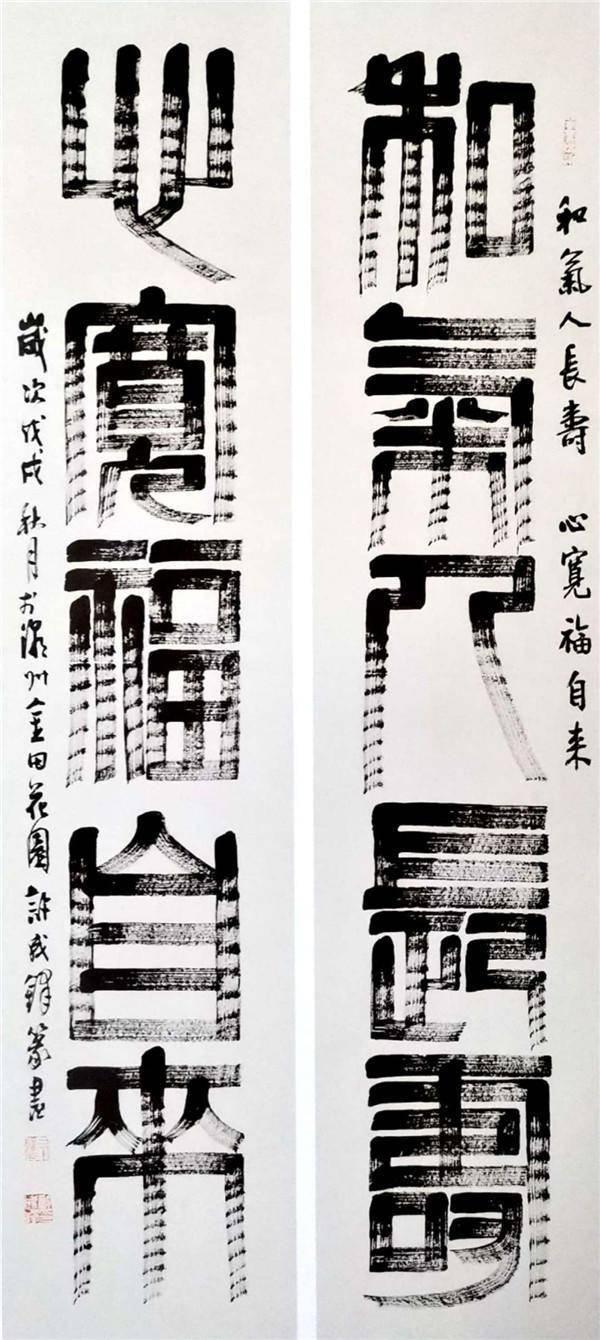 和氣人長壽 心寬福自来
和氣人長壽
心寬福自來
歲次戊戌秋月於潮州金田花園許鐸篆書